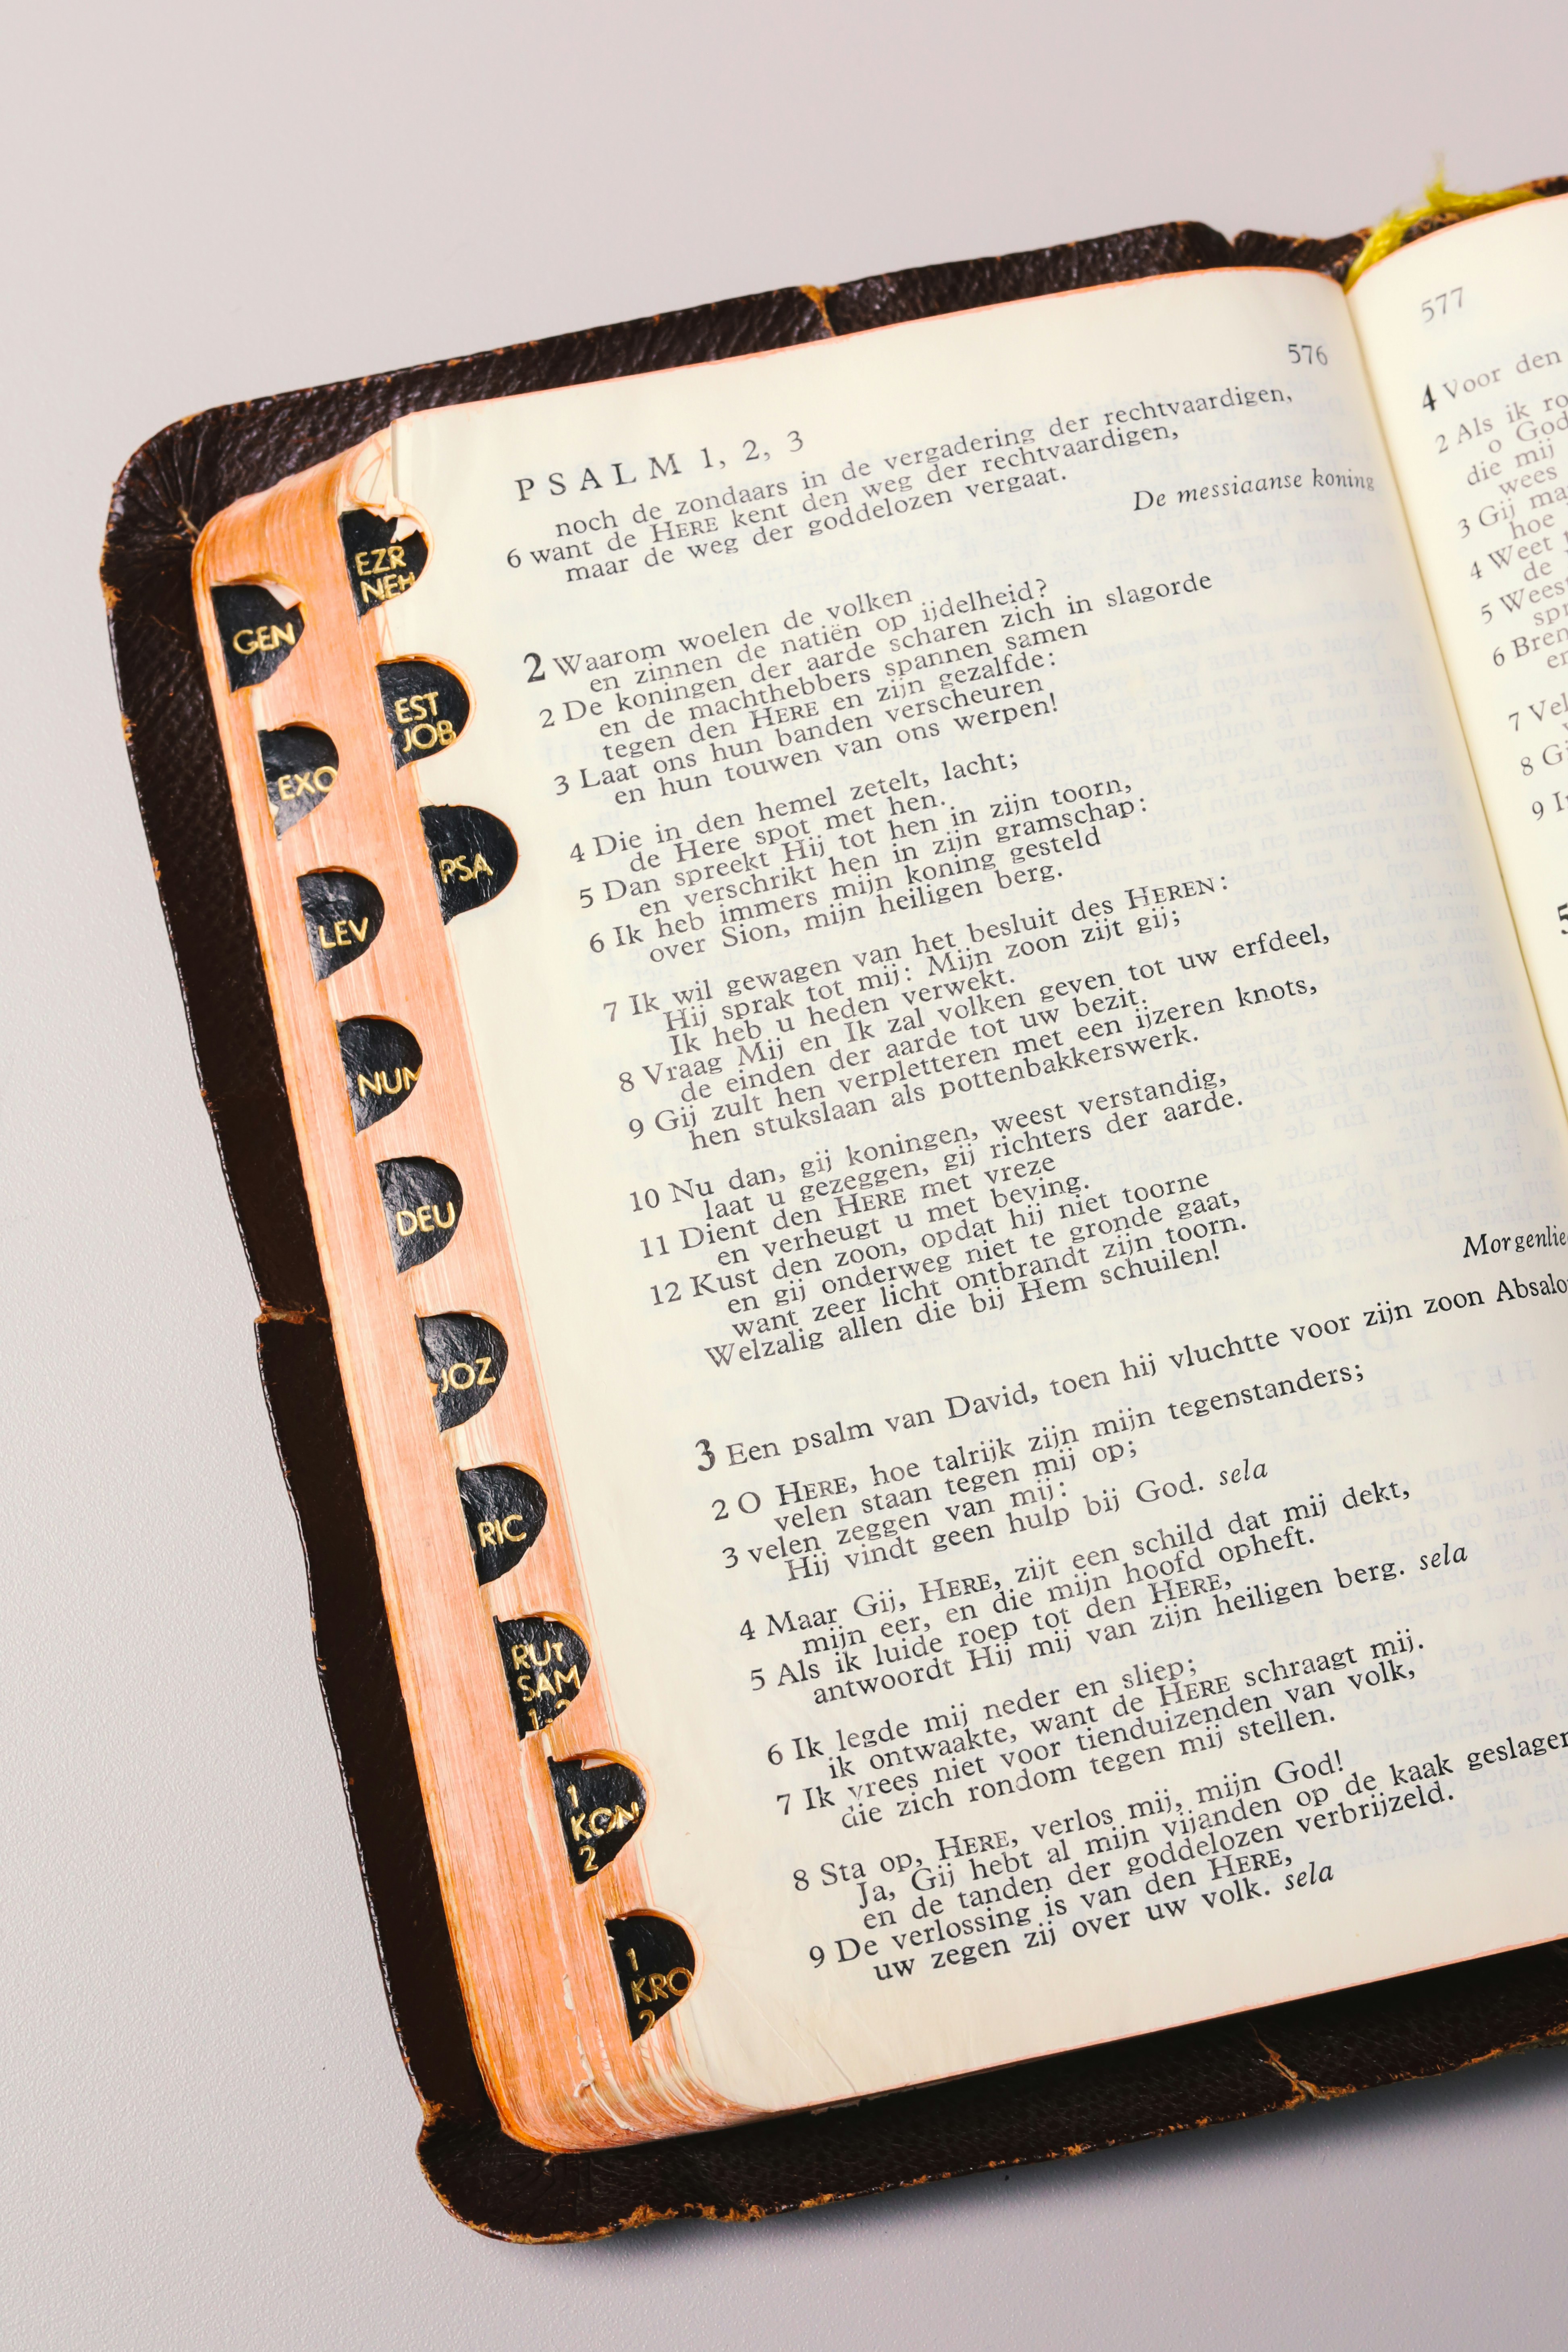 EZR
NEH
GEN
EST
JOB
EXO
PSA
LEV
NUM
DEU
JOZ
RIC
RUT
SAM
1-2
1
KON
2
1
KRO
2
PSALM 1, 2, 3
576
noch de zondaars in de vergadering der rechtvaardigen,
6 want de HERE kent den weg der rechtvaardigen,
maar de weg der goddelozen vergaat.
De messiaanse koning
2 Waarom woelen de volken
en zinnen de natiën op ijdelheid?
2 De koningen der aarde scharen zich in slagorde
en de machthebbers spannen samen
tegen den HERE en zijn gezalfde:
3 Laat ons hun banden verscheuren
en hun touwen van ons werpen!
4 Die in den hemel zetelt, lacht;
de Here spot met hen.
5 Dan spreekt Hij tot hen in zijn toorn,
en verschrikt hen in zijn gramschap:
6 Ik heb immers mijn koning gesteld
over Sion, mijn heiligen berg.
7 Ik wil gewagen van het besluit des HEREN:
Hij sprak tot mij: Mijn zoon zijt gij;
Ik heb u heden verwekt.
8 Vraag Mij en Ik zal volken geven tot uw erfdeel,
de einden der aarde tot uw bezit.
9 Gij zult hen verpletteren met een ijzeren knots,
hen stukslaan als pottenbakkerswerk.
10 Nu dan, gij koningen, weest verstandig,
laat u gezeggen, gij richters der aarde.
11 Dient den HERE met vreze
en verheugt u met beving.
12 Kust den zoon, opdat hij niet toorne
en gij onderweg niet te gronde gaat,
want zeer licht ontbrandt zijn toorn.
Welzalig allen die bij Hem schuilen!
Morgenlie
3 Een psalm van David, toen hij vluchtte voor zijn zoon Absalo
2 O HERE, hoe talrijk zijn mijn tegenstanders;
velen staan tegen mij op;
3 velen zeggen van mij:
Hij vindt geen hulp bij God. sela
4 Maar Gij, HERE, zijt een schild dat mij dekt,
mijn eer, en die mijn hoofd opheft.
5 Als ik luide roep tot den HERE,
antwoordt Hij mij van zijn heiligen berg. sela
6 Ik legde mij neder en sliep;
ik ontwaakte, want de HERE schraagt mij.
7 Ik vrees niet voor tienduizenden van volk,
die zich rondom tegen mij stellen.
8 Sta op, HERE, verlos mij, mijn God!
Ja, Gij hebt al mijn vijanden op de kaak geslagen
en de tanden der goddelozen verbrijzeld.
9 De verlossing is van den HERE,
uw zegen zij over uw volk. sela
577
4 Voor den
2 Als ik ro
o God
die mij
wees
3 Gij ma
hoe
4 Weet
de
5 Weest
spr
6 Bren
en
7 Vel
8 Gi
9 I
5